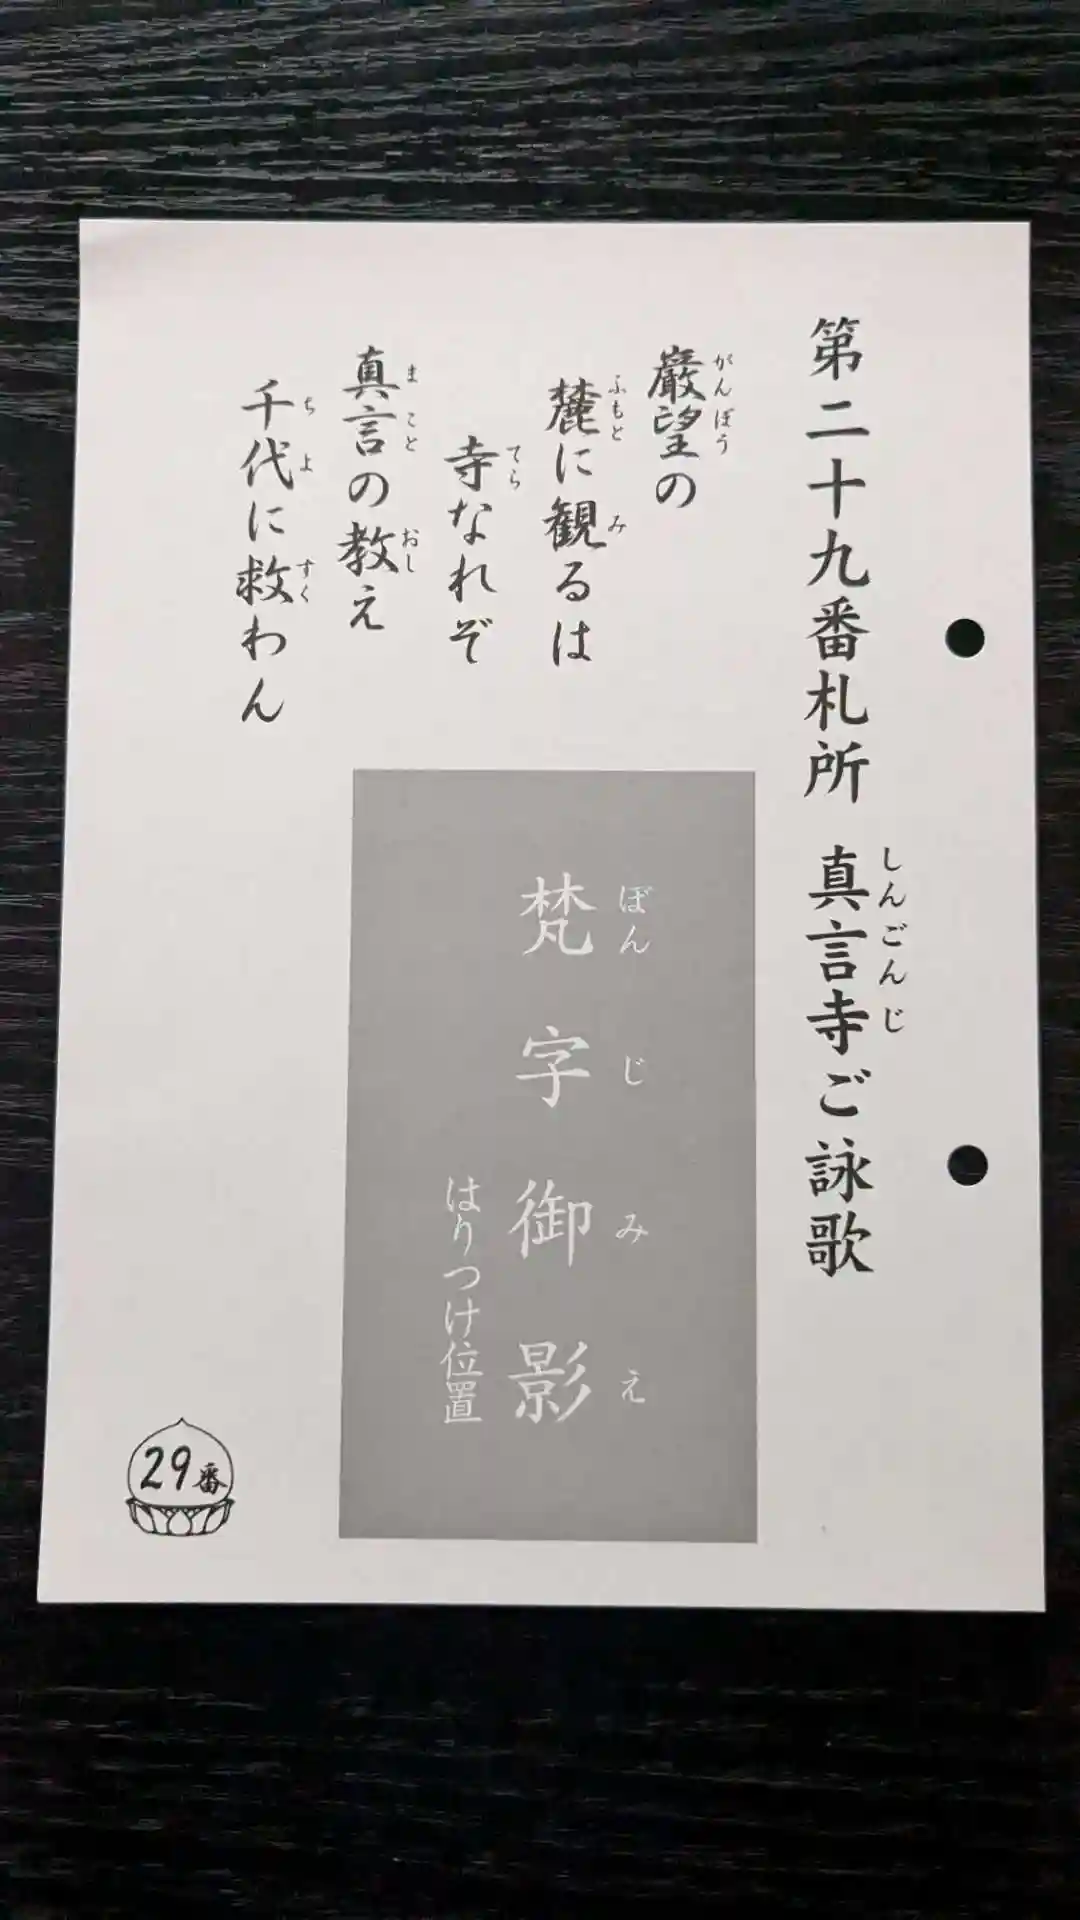 第二十九番札所 真言寺ご詠歌
しんごんじ
巌望の
がんぼう
麓に観るは
ふもと み
寺なれぞ
てら
真言の教え
まこと おし
千代に救わん
ちよ すく
梵字御影
ぼんじみえ
はりつけ位置
29番